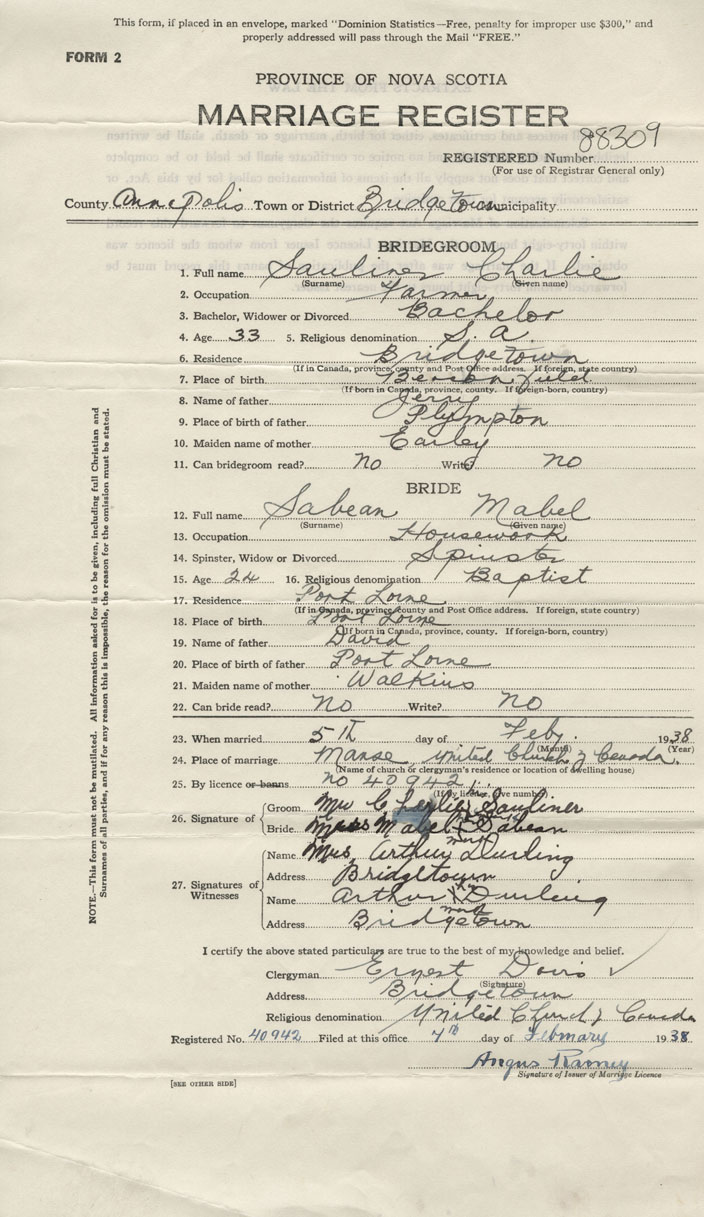 This form, if placed in an envelope, marked "Dominion Statistics—Free, penalty for improper use $300," and
properly addressed will pass through the Mail "FREE."
FORM 2
PROVINCE OF NOVA SCOTIA
MARRIAGE REGISTER
88309
REGISTERED Number
(For use of Registrar General only)
County Annapolis Town or District Bridgetown Municipality
BRIDEGROOM
1. Full name Sauliner Charlie
(Surname) (Given name)
2. Occupation Farmer
3. Bachelor, Widower or Divorced Bachelor
4. Age 33 5. Religious denomination S. A.
6. Residence Bridgetown
(If in Canada, province, county and Post Office address. If foreign, state country)
7. Place of birth Beaconfield
(If born in Canada, province, county. If foreign-born, country)
8. Name of father Jerry
9. Place of birth of father Plympton
10. Maiden name of mother Earley
11. Can bridegroom read? no Write? no
BRIDE
12. Full name Sabean Mabel
(Surname) (Given name)
13. Occupation Housework
14. Spinster, Widow or Divorced Spinster
15. Age 24 16. Religious denomination Baptist
17. Residence Port Lorne
(If in Canada, province, county and Post Office address. If foreign, state country)
18. Place of birth Port Lorne
(If born in Canada, province, county. If foreign-born, country)
19. Name of father David
20. Place of birth of father Port Lorne
21. Maiden name of mother Walkins
22. Can bride read? no Write? no
23. When married 5th day of Feby. 1938
(Month) (Year)
24. Place of marriage Manse United Church of Canada.
(Name of church or clergyman's residence or location of dwelling house)
25. By licence or banns no 40942
(If by licence, give number)
26. Signature of Groom. Mr Charlie Sauliner
Bride. Miss Mabel Sabean
mark
27. Signatures of Witnesses
Name. Mrs. Arthur Durling
Address Bridgetown
Name Arthur X Durling
mark
Address Bridgetown
I certify the above stated particulars are true to the best of my knowledge and belief.
Clergyman Ernest Davis ✓
(Signature)
Address Bridgetown
Religious denomination United Church of Canada
Registered No. 40942 Filed at this office 7th day of February 1938
Angus Ramey
Signature of Issuer of Marriage Licence
[SEE OTHER SIDE]
NOTE.—This form must not be mutilated. All information asked for is to be given, including full Christian and
Surnames of all parties, and if for any reason this is impossible, the reason for the omission must be stated.